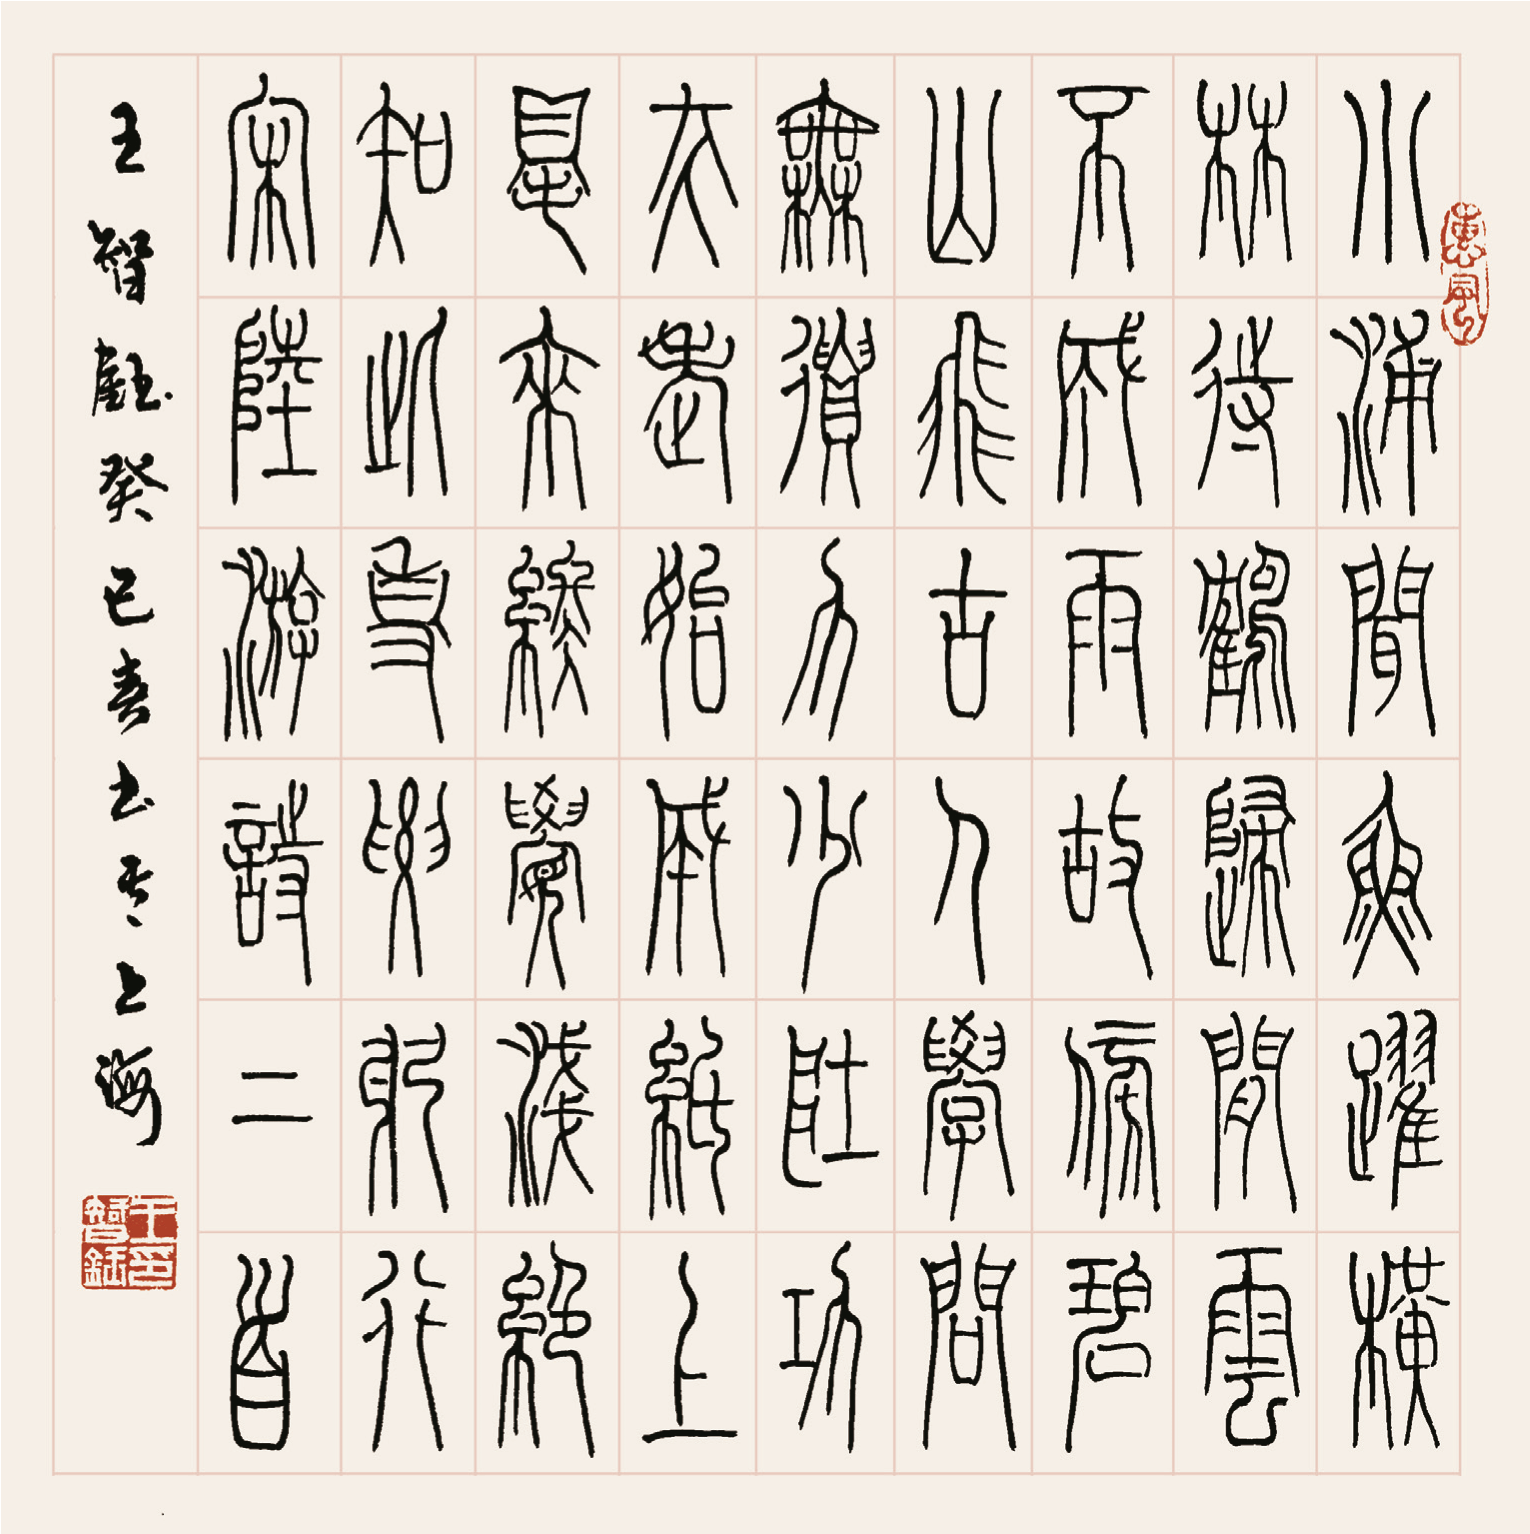 惠風
小浦聞魚躍橫
林待鶴歸閒雲
不成雨故傍碧
山飛古人學問
無遺力少壯功
夫老始成紙上
得來終覺淺絕
知此事要躬行
宋陸游詩二首
王智鈺癸巳春書於上海
王智鈺印